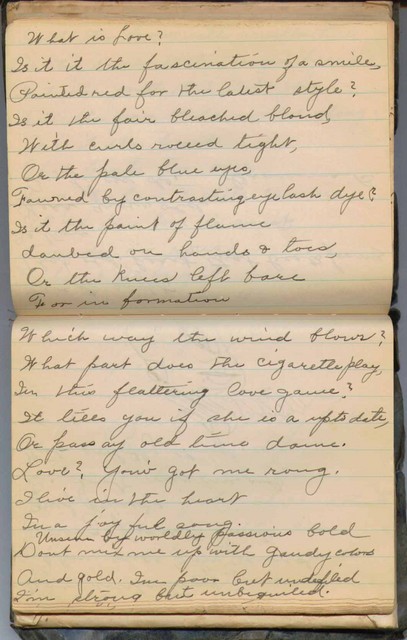 What is Love?
Is it it the fascination of a smile,
Painted red for the latest style?
Is it the fair bleached blond,
With curls roceed tight,
Or the pale blue eyes,
Fawned by contrasting eye lash dye?
Is it the paint of flame
daubed on hands & toes,
Or the knees left bare
For in formation
Which way the wind blows?
What part does the cigarette play,
In this flattering love game?
It tells you if she is a upto date,
Or passay old time dame.
Love? You'v got me rong.
I live in the heart
In a joyful song.
Unseen by worldly passions bold
Dont mix me up with gaudy colors
And gold. I'm poor but undefiled
I'm strong but unbeguiled.